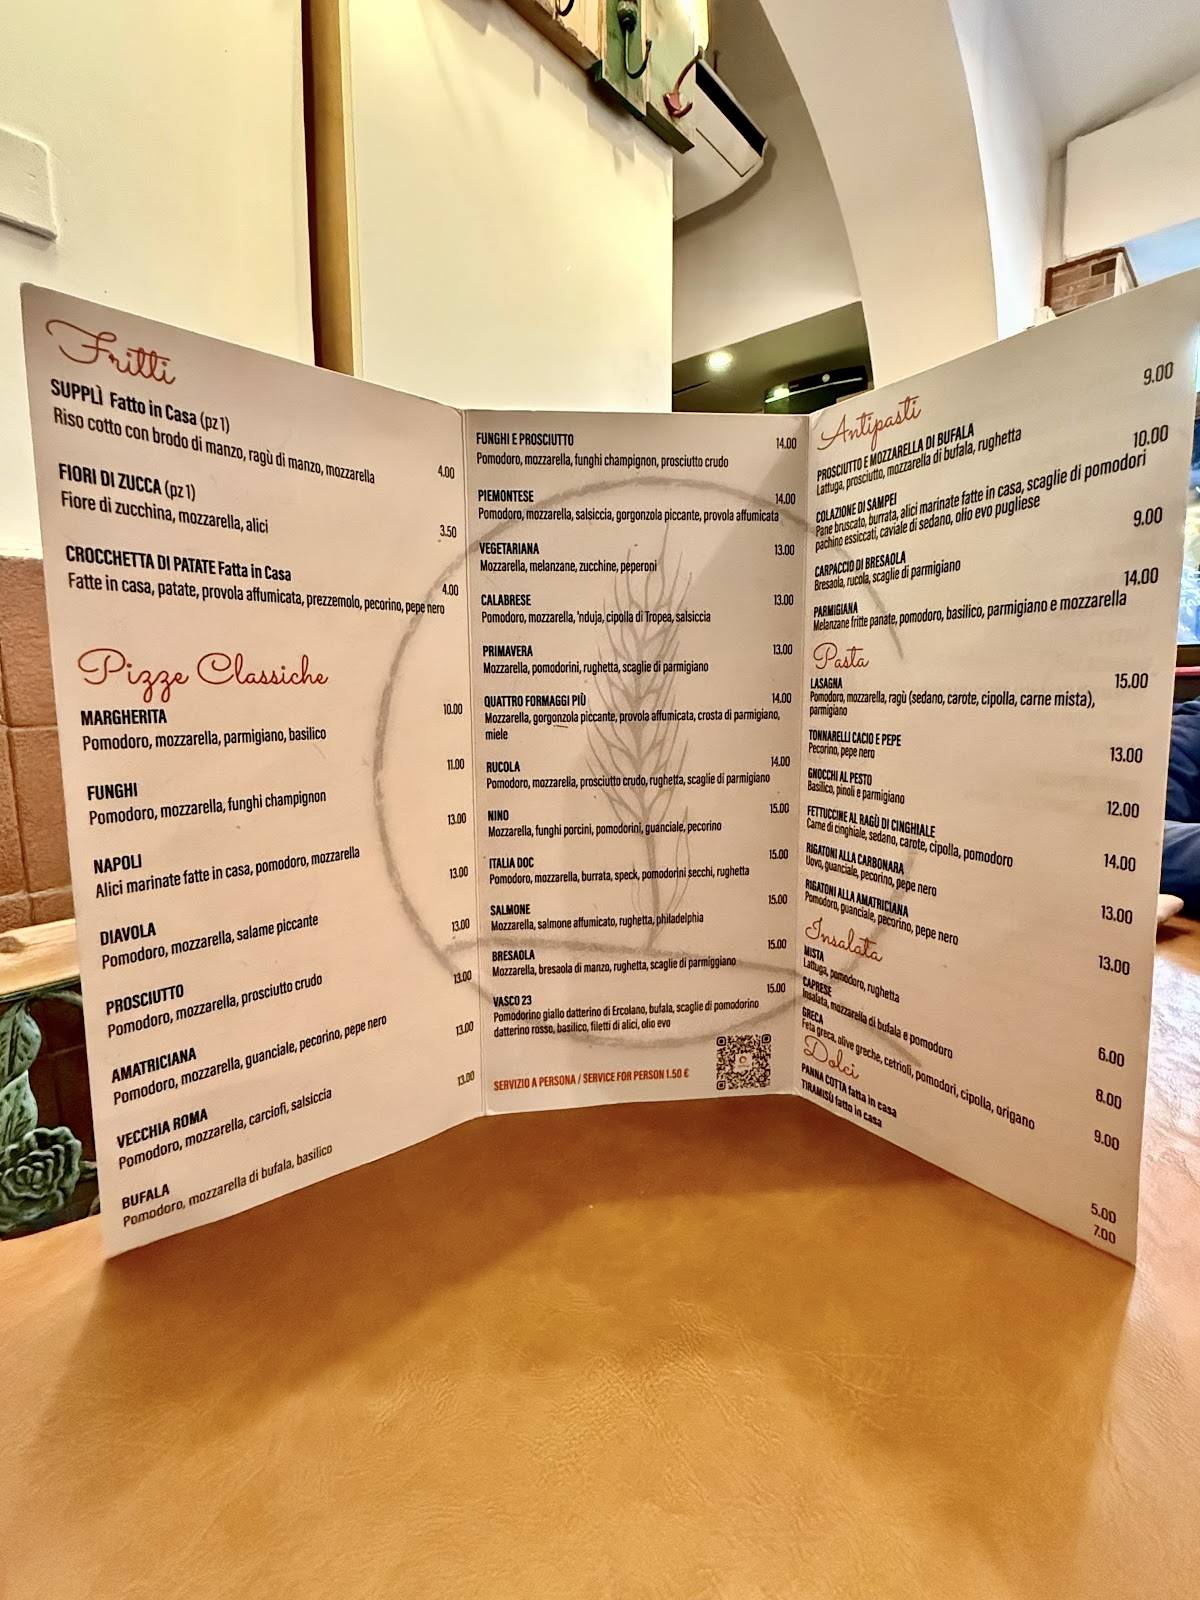 Fritti
SUPPLÌ Fatto in Casa (pz 1)
Riso cotto con brodo di manzo, ragù di manzo, mozzarella
4.00
FIORI DI ZUCCA (pz 1)
Fiore di zucchina, mozzarella, alici
3.50
CROCCHETTA DI PATATE Fatta in Casa
4.00
Fatte in casa, patate, provola affumicata, prezzemolo, pecorino, pepe nero
Pizze Classiche
MARGHERITA 10.00
Pomodoro, mozzarella, parmigiano, basilico
FUNGHI 11.00
Pomodoro, mozzarella, funghi champignon
NAPOLI 13.00
Alici marinate fatte in casa, pomodoro, mozzarella
DIAVOLA 13.00
Pomodoro, mozzarella, salame piccante
PROSCIUTTO 13.00
Pomodoro, mozzarella, prosciutto crudo
AMATRICIANA 13.00
Pomodoro, mozzarella, guanciale, pecorino, pepe nero
VECCHIA ROMA 13.00
Pomodoro, mozzarella, carciofi, salsiccia
BUFALA 13.00
Pomodoro, mozzarella di bufala, basilico
FUNGHI E PROSCIUTTO 14.00
Pomodoro, mozzarella, funghi champignon, prosciutto crudo
PIEMONTESE 14.00
Pomodoro, mozzarella, salsiccia, gorgonzola piccante, provola affumicata
VEGETARIANA 13.00
Mozzarella, melanzane, zucchine, peperoni
CALABRESE 13.00
Pomodoro, mozzarella, 'nduja, cipolla di Tropea, salsiccia
PRIMAVERA 13.00
Mozzarella, pomodorini, rughetta, scaglie di parmigiano
QUATTRO FORMAGGI PIÙ 14.00
Mozzarella, gorgonzola piccante, provola affumicata, crosta di parmigiano,
miele
RUCOLA 14.00
Pomodoro, mozzarella, prosciutto crudo, rughetta, scaglie di parmigiano
NINO 15.00
Mozzarella, funghi porcini, pomodorini, guanciale, pecorino
ITALIA DOC 15.00
Pomodoro, mozzarella, burrata, speck, pomodorini secchi, rughetta
SALMONE 15.00
Mozzarella, salmone affumicato, rughetta, philadelphia
BRESAOLA 15.00
Mozzarella, bresaola di manzo, rughetta, scaglie di parmiggiano
VASCO 23 15.00
Pomodorino giallo datterino di Ercolano, bufala, scaglie di pomodorino
datterino rosso, basilico, filetti di alici, olio evo
SERVIZIO A PERSONA / SERVICE FOR PERSON 1.50 €
Antipasti
PROSCIUTTO E MOZZARELLA DI BUFALA 9.00
Lattuga, prosciutto, mozzarella di bufala, rughetta
COLAZIONE DI SAMPEI 10.00
Pane bruscato, burrata, alici marinate fatte in casa, scaglie di pomodori
pachino essiccati, caviale di sedano, olio evo pugliese
CARPACCIO DI BRESAOLA 9.00
Bresaola, rucola, scaglie di parmigiano
PARMIGIANA 14.00
Melanzane fritte panate, pomodoro, basilico, parmigiano e mozzarella
Pasta
LASAGNA 15.00
Pomodoro, mozzarella, ragù (sedano, carote, cipolla, carne mista),
parmigiano
TONNARELLI CACIO E PEPE 13.00
Pecorino, pepe nero
GNOCCHI AL PESTO 12.00
Basilico, pinoli e parmigiano
FETTUCCINE AL RAGÙ DI CINGHIALE 14.00
Carne di cinghiale, sedano, carote, cipolla, pomodoro
RIGATONI ALLA CARBONARA 13.00
Uovo, guanciale, pecorino, pepe nero
RIGATONI ALLA AMATRICIANA 13.00
Pomodoro, guanciale, pecorino, pepe nero
Insalata
MISTA 6.00
Lattuga, pomodoro, rughetta
CAPRESE 8.00
Insalata, mozzarella di bufala e pomodoro
GRECA 9.00
Feta greca, olive greche, cetrioli, pomodori, cipolla, origano
Dolci
PANNA COTTA fatta in casa 5.00
TIRAMISÙ fatto in casa 7.00